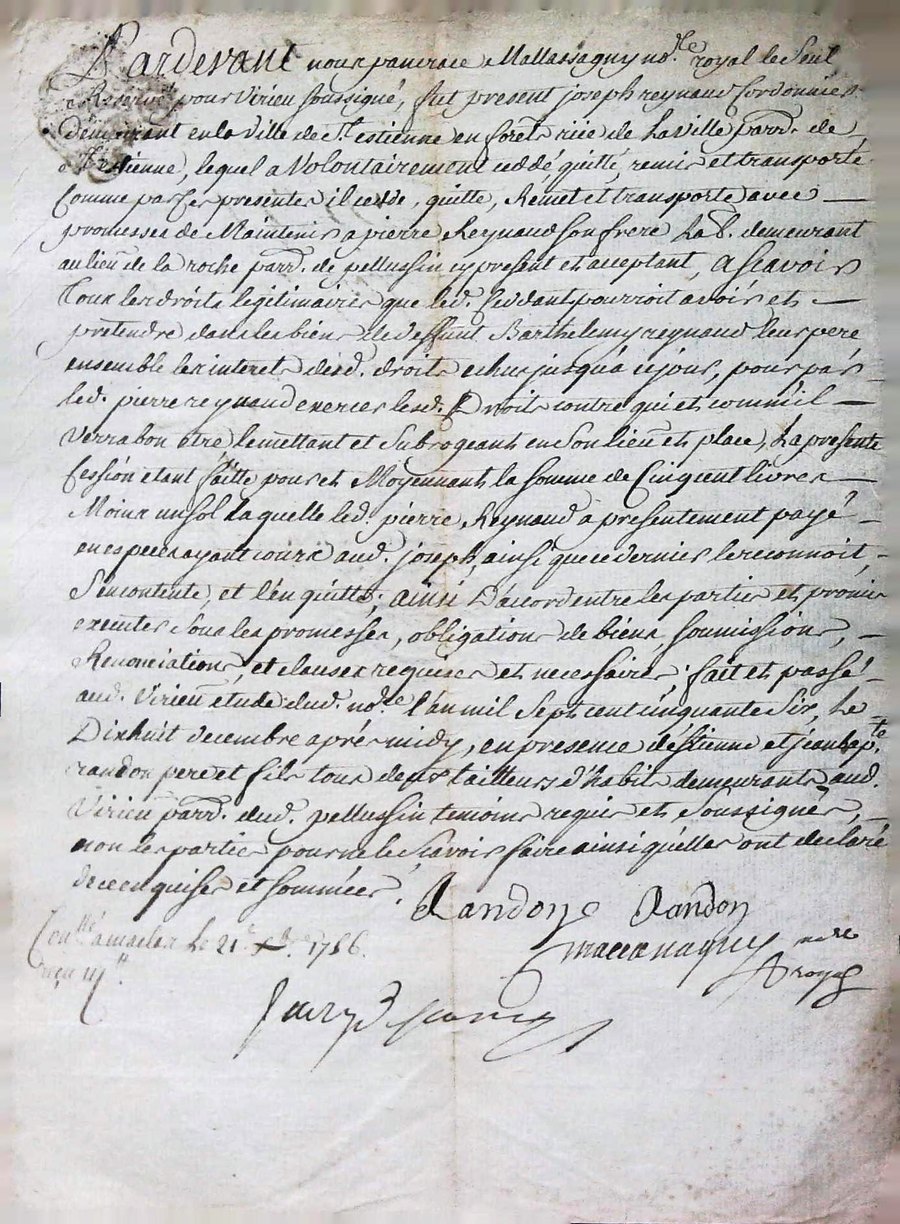 Pardevant nous pancrace Mallassagny no.re royal le Seul
Reservé pour Virieu soussigné, fut present joseph reynaud Cordonnier
demeurant en la Ville de St. estienne en forêt rüe de La Ville parr. de
St. Etienne, lequel a Volontairement ceddé, quitté, remis et transporté
Comme par ces presentes il cedde, quitte, Remet et transporte avec
promesses de Maintenir a pierre Reynaud son frere La B. demeurant
au lieu de la roche parr. de pellussin cy present et acceptant, a scavoir
Tous les droits legitimaires que led. Ceddant pourroit avoir et
pretendre dans les biens de deffunt Barthelemy reynaud leur pere
ensemble les interets desd. droits echus jusqu'à ce jour, pour par
led. pierre reynaud exercer lesd. Droits contre qui et comm'il
Verra bon être, le mettant et Subrogeant en Son lieu et place, La presente
Cession etant faitte pour et Moyennant la somme de Cinq cent livres
Moins un sol laquelle led. pierre Reynaud a presentement payé
en especes ayant cours aud. joseph, ainsi que ce dernier le reconnoit,
S'en contente, et l'en quitte; ainsi D'accord entre les parties et promis
executer Sous les promesses, obligations de biens, soumissions,
Renonciations, et clauses requises et necessaires; fait et passé
aud. Virieu etude dud. no.re l'an mil Sept cent cinquante Six, Le
Dixhuit decembre aprés midy, en presence d'estienne et jean bap.te
randon pere et fils tous deux tailleurs d'habits demeurants aud.
Virieu parr. dud. pellussin temoins requis et Soussignés,
non les parties pour ne le Scavoir faire ainsi qu'elles ont declaré
de ce enquises et sommées.
Randon Randon
no.re
royal
Con.llé a maclas Le 21. X.bre 1756.